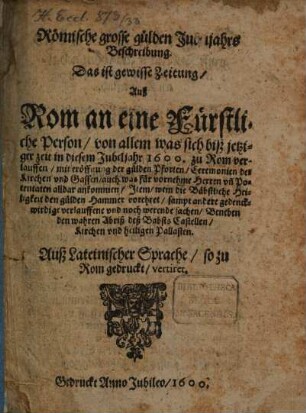 H. Eccl. 873/33
Römische grosse gülden Jubeljahrs
Beschreibung.
Das ist gewisse Zeitung/
Auß
Rom an eine Fürstli-
che Person/ von allem was sich biß jetzi-
ger zeit in diesem Jubiljahr 1600. zu Rom ver-
lauffen/ mit eröffnung der gülden Pforten/ Ceremonien des
Kirchen vnd Gassen/ auch was für vornehme Herren vñ Po-
tentaten alldar ankommen/ Item/ wem die Bäbstliche Hei-
ligkeit den gülden Hammer verehret/ sampt andere gedenck-
wirdige verlauffene vnd noch werende sachen/ Beneben
den wahren Abriß deß Babsts Castellen/
Kirchen vnd heiligen Pallasten.
Auß Lateinischer Sprache/ so zu
Rom gedruckt/ vertiret.
BIBLIOTHECA
REGIA
MONACENSIS.
Gedruckt Anno Jubileo/ 1600.